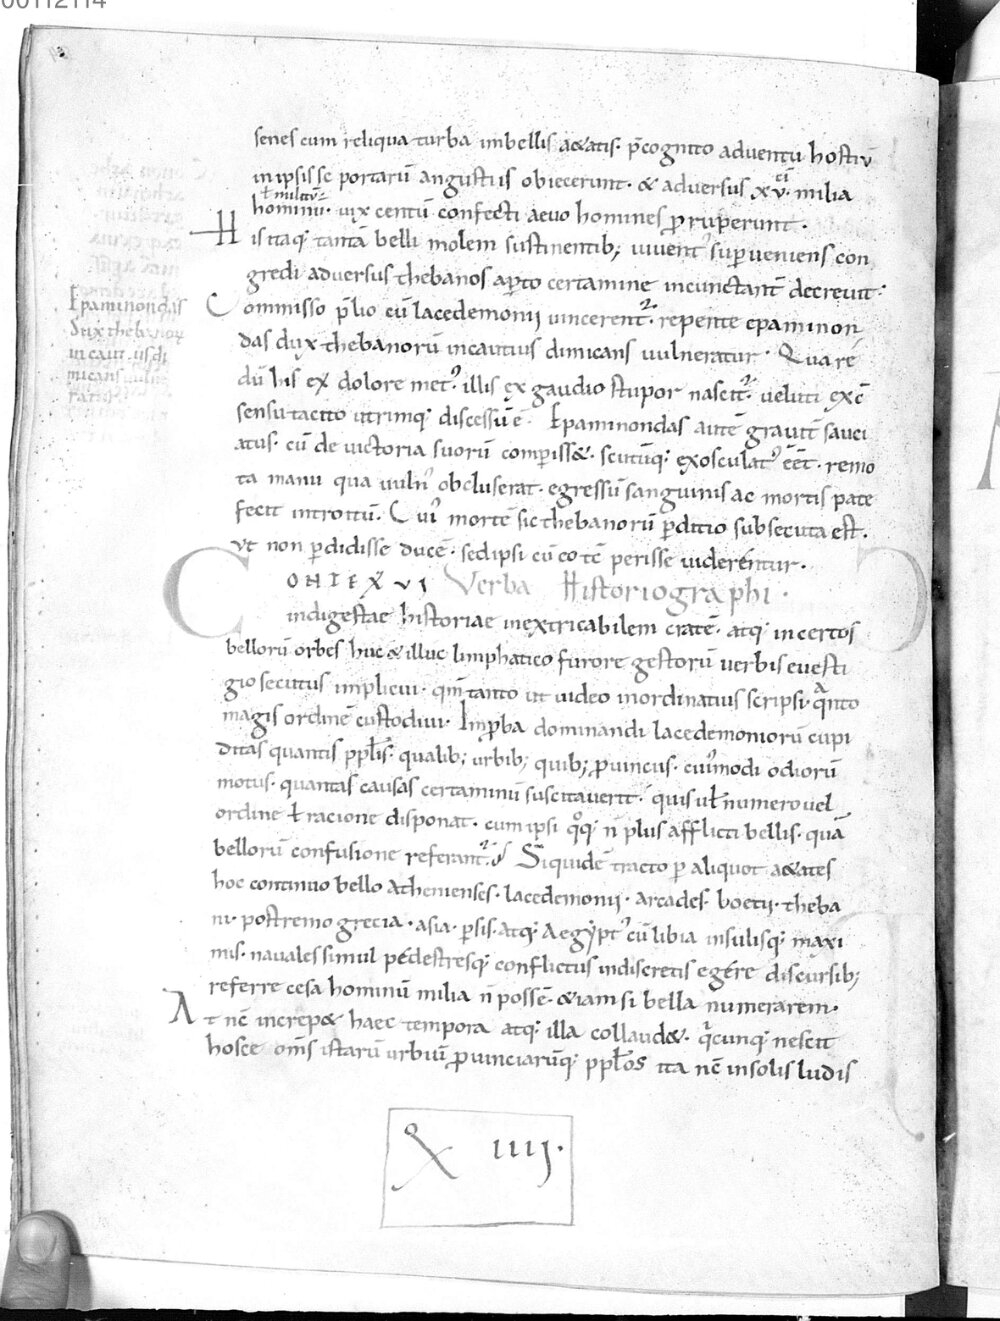 00112114
senes cum reliqua turba imbellis a&atis· p̄cognito aduentu hostiū
in ipsis se portarū angustiis obiecerunt· & aduersus xv· milia
ł militū
hominū· uix centū confecti aeuo homines ꝓruperunt·
His itaq; tantā belli molem sustinentib; iuuent᾿ superueniens con
gredi aduersus thebanos aꝑto certamine incunctant̄ decreuit·
Commisso p̄lio cū lacedemonii uincerent᾿· repente epaminon
das dux thebanorū incautius dimicans uulneratur· Qua re
dū his ex dolore met᾿ illis ex gaudio stupor nascit᾿· ueluti ex c̄
sensu tacito utrimq; discessū ē· Epaminondas autē grauit̄ sauci
atus· cū de uictoria suorū comperiss&· scutūq; exosculat᾿ eēt· remo
ta manu qua uuln᾿ obcluserat· egressū sanguinis ac mortis pate
fecit introitū· Cui᾿ mortē sic thebanorū ꝑditio subsecuta est·
Vt non ꝑdidisse ducē· sed ipsi cū eo tē perisse uiderentur·
Epaminondas
dux thebanorū
incaut᾿ dimi
micans uulne
ratur
CONTEXVI Verba Historiographi·
indigestae historiae inextricabilem cratē· atq; incertos
bellorū orbes huc & illuc limphatico furore gestorū uerbis euesti
gio secutus implicui· qm̄ tanto ut uideo inordinatius scripsi· qᵃnto
magis ordinē custodiui· Improba dominandi lacedemoniorū cupi
ditas quantis pplīs· qualib; urbib; quib; ꝓuinciis· cui᾿modi odiorū
motus· quantas causas certaminū suscitauerit· quis uł numero uel
ordine ł racione disponat· cum ipsi qᵒq; n̄ plus afflicti bellis· quā
bellorū confusione referant᾿· Siquidē tracto ꝑ aliquot a&ates
hoc continuo bello athenienses· lacedemonii· arcades· boetii· theba
ni· postremo grecia· asia· ꝑsis· atq; Aegypt᾿ cū libia insulisq; maxi
mis· nauales simul pedestresq; conflictus indiscretis egere discursib;
referre cesa hominū milia n̄ possē· &iam si bella numerarem·
At nc̄ increp& haec tempora atq; illa collaud&· qᵃcunq; nescit
hosce om̄s istarū urbiū ꝓuinciarūq; ppłos ita nc̄ in solis ludis
X IIII·